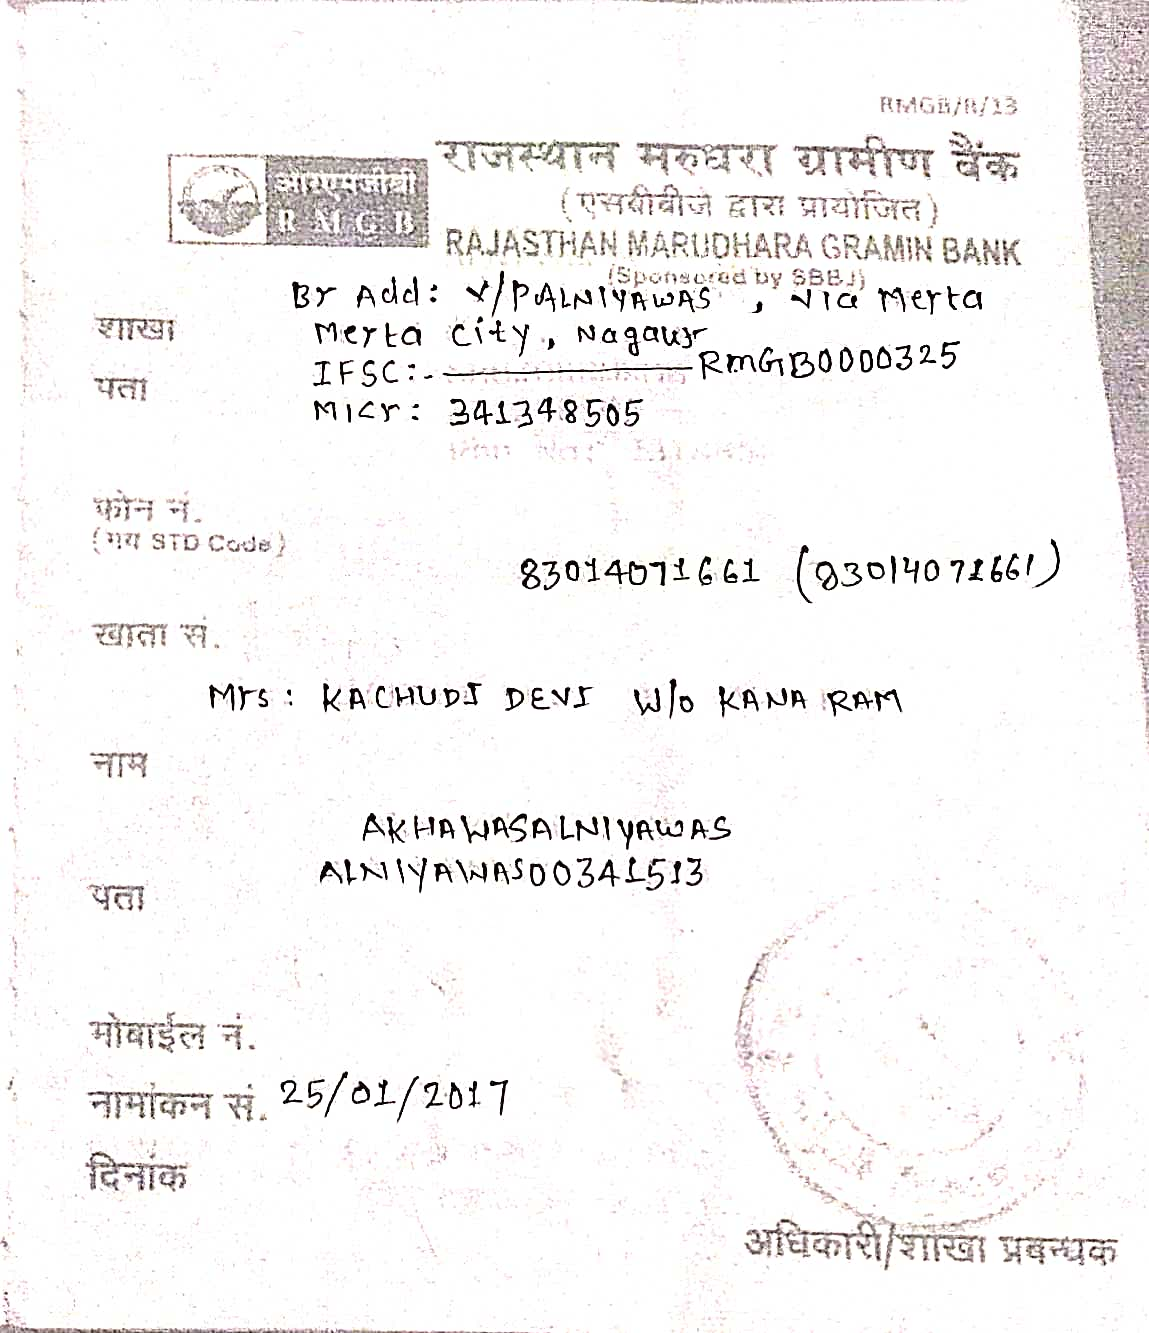 RMGB/R/13
राजस्थान मरुधरा ग्रामीण बैंक
आरएमजीबी
(एसबीबीजे द्वारा प्रायोजित)
R M G B
RAJASTHAN MARUDHARA GRAMIN BANK
(Sponsored by SBBJ)
Br Add: V/PALNIYAWAS , via Merta
शाखा
Merta City, Nagaur
IFSC:- RMGB0000325
पता
Micr: 341348505
फोन नं.
(मय STD Code)
83014071661 (83014071661)
खाता सं.
Mrs: KACHUDI DEVI W/o KANA RAM
नाम
AKHAWASALNIYAWAS
ALNIYAWAS00341513
पता
मोबाईल नं.
नामांकन सं. 25/01/2017
दिनांक
अधिकारी/शाखा प्रबन्धक